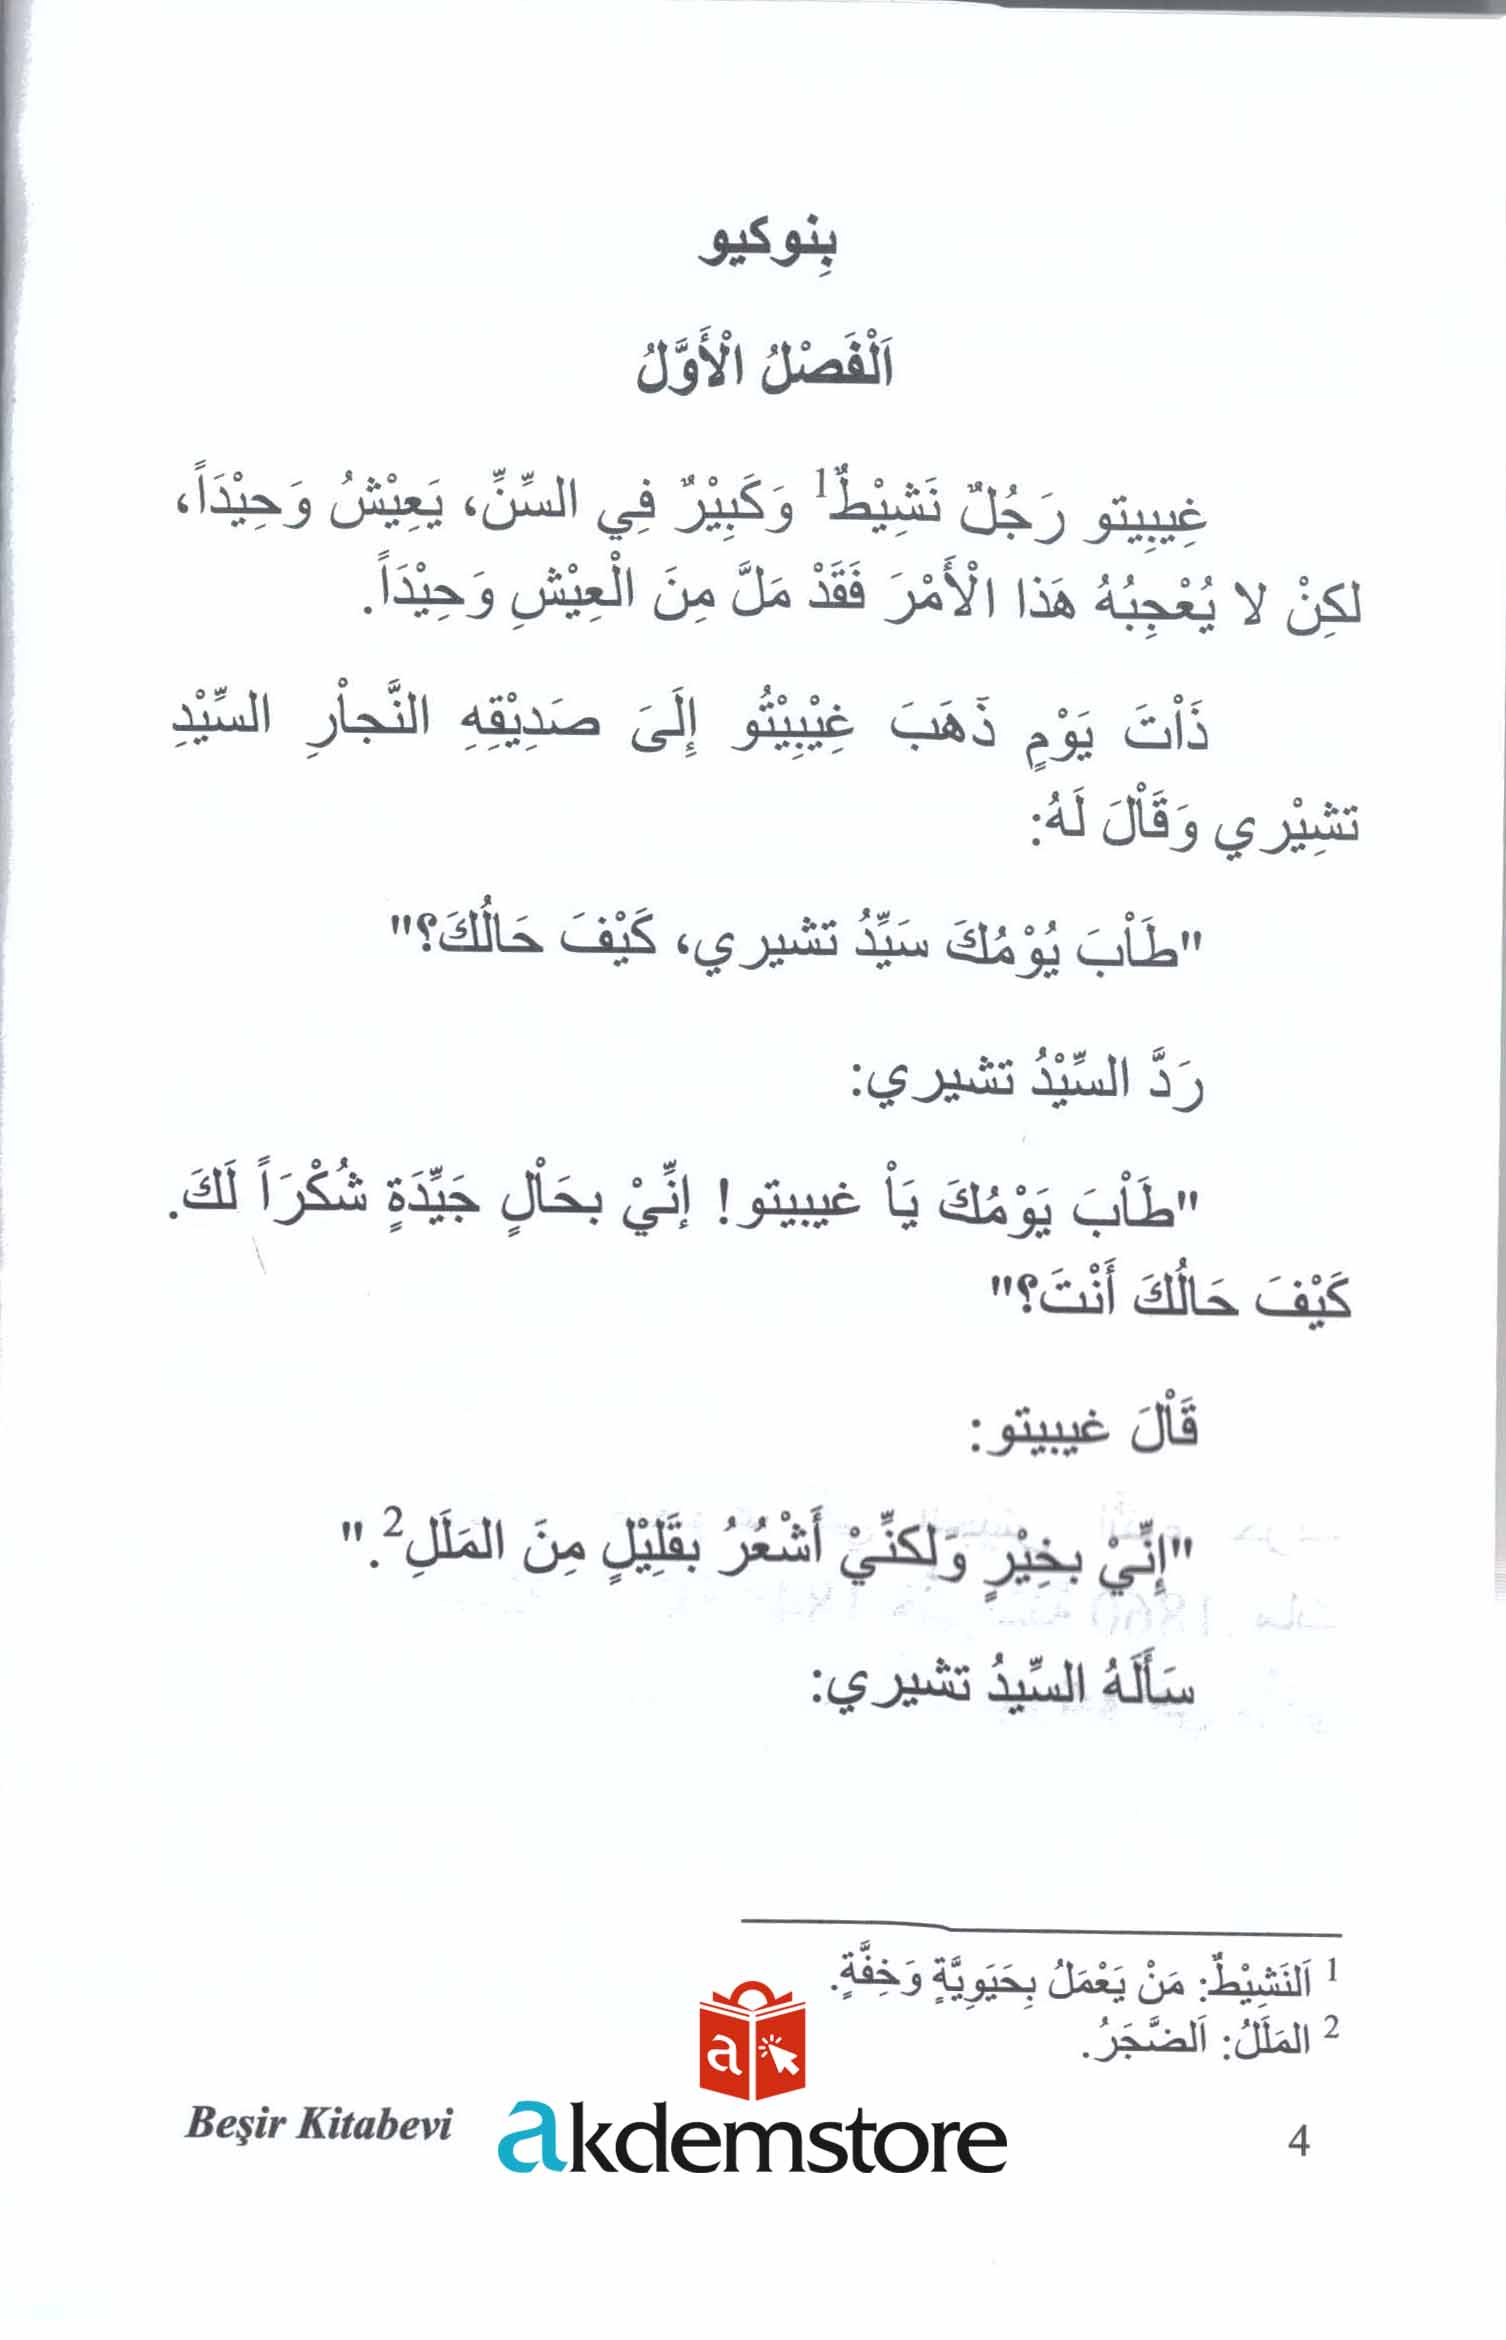 بِنوكيو
اَلْفَصْلُ الْأَوَّلُ
غِيبِيتو رَجُلٌ نَشِيْطٌ1 وَكَبِيْرٌ فِي السِّنِّ، يَعِيْشُ وَحِيْدَاً،
لكِنْ لا يُعْجِبُهُ هَذا الْأَمْرَ فَقَدْ مَلَّ مِنَ الْعِيْشِ وَحِيْدَاً.
ذَاْتَ يَوْمٍ ذَهَبَ غِيْبِيْتُو إِلَىَ صَدِيْقِهِ النَّجاْرِ السِّيْدِ
تشِيْري وَقَاْلَ لَهُ:
"طَاْبَ يُوْمُكَ سَيِّدُ تشيري، كَيْفَ حَالُكَ؟"
رَدَّ السِّيْدُ تشيري:
"طَاْبَ يَوْمُكَ يَاْ غيبيتو! إنِّيْ بحَاْلٍ جَيِّدَةٍ شُكْرَاً لَكَ.
كَيْفَ حَالُكَ أَنْتَ؟"
قَاْلَ غيبيتو:
"إِنِّيْ بخِيْرٍ وَلكنِّيْ أَشْعُرُ بقَلِيْلٍ مِنَ المَلَلِ2."
سَأَلَهُ السِّيدُ تشيري:
1 اَلنَشِيْطٌ: مَنْ يَعْمَلُ بِحَيَوِيَّةٍ وَخِفَّةٍ.
2 المَلَلُ: اَلضَّجَرُ.
a
Beşir Kitabevi akdemstore 4